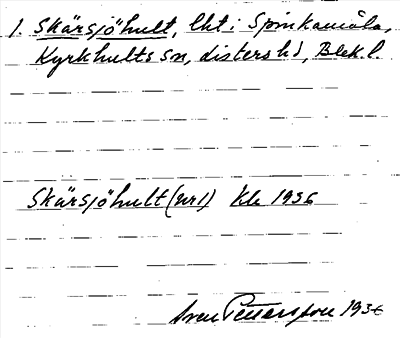 1. Skärsjöhult, lht i Spinkamåla,
Kyrkhults sn, Listers hd, Blek. l.
Skärsjöhult (nr 1) Kk 1936
Sven Pettersson 1936